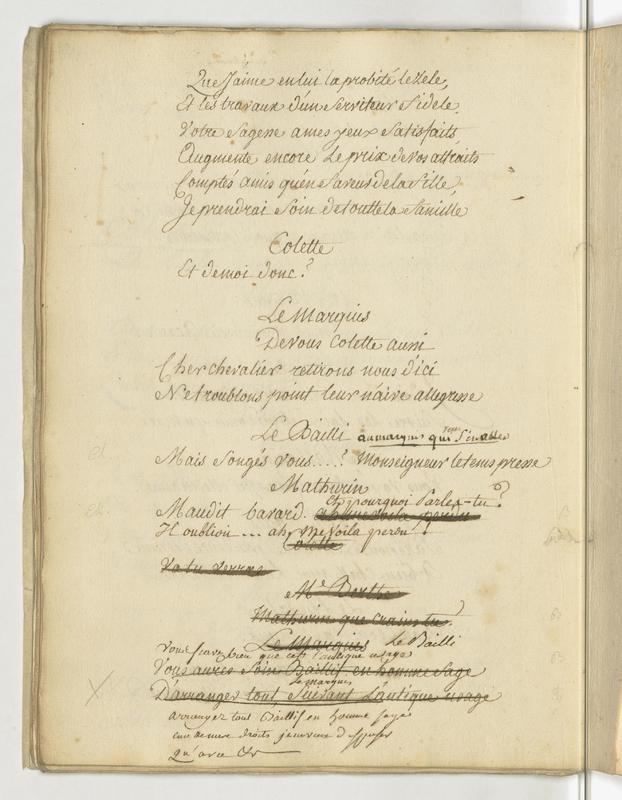 Que J'aime en lui la probité le Zele,
Et les travaux d'un Serviteur fidele
Votre Sagesse a mes yeux Satisfaits
Augmente encore le prix de vos attraits
Comptés amis qu'en faveur de la fille
Je prendrai Soin de toutte la famille
Colette
Et de moi donc?
Le Marquis
De vous Colette aussi
Cher chevalier retirons nous d'ici
Ne troublons point leur naive allegresse
Le Bailli au marquis qui S'en alle
Mais Songés vous....? Monseigneur le tems presse
Mathurin
et pourquoi parles-tu?
Maudit bavard. ah me voila perdu
Il oublion... ah, me voila perdu!
Colette
va tu verras
Me Berthe
Mathurin que crains tu?
Le Marquis Le Bailli
vous savez bien que cest l'antique usage
Vous aurez Soin Baillif en homme Sage
le marquis
D'arranger tout, Suivant l'antique usage
arrangez tout Baillif en homme sage
droits
qu'avec